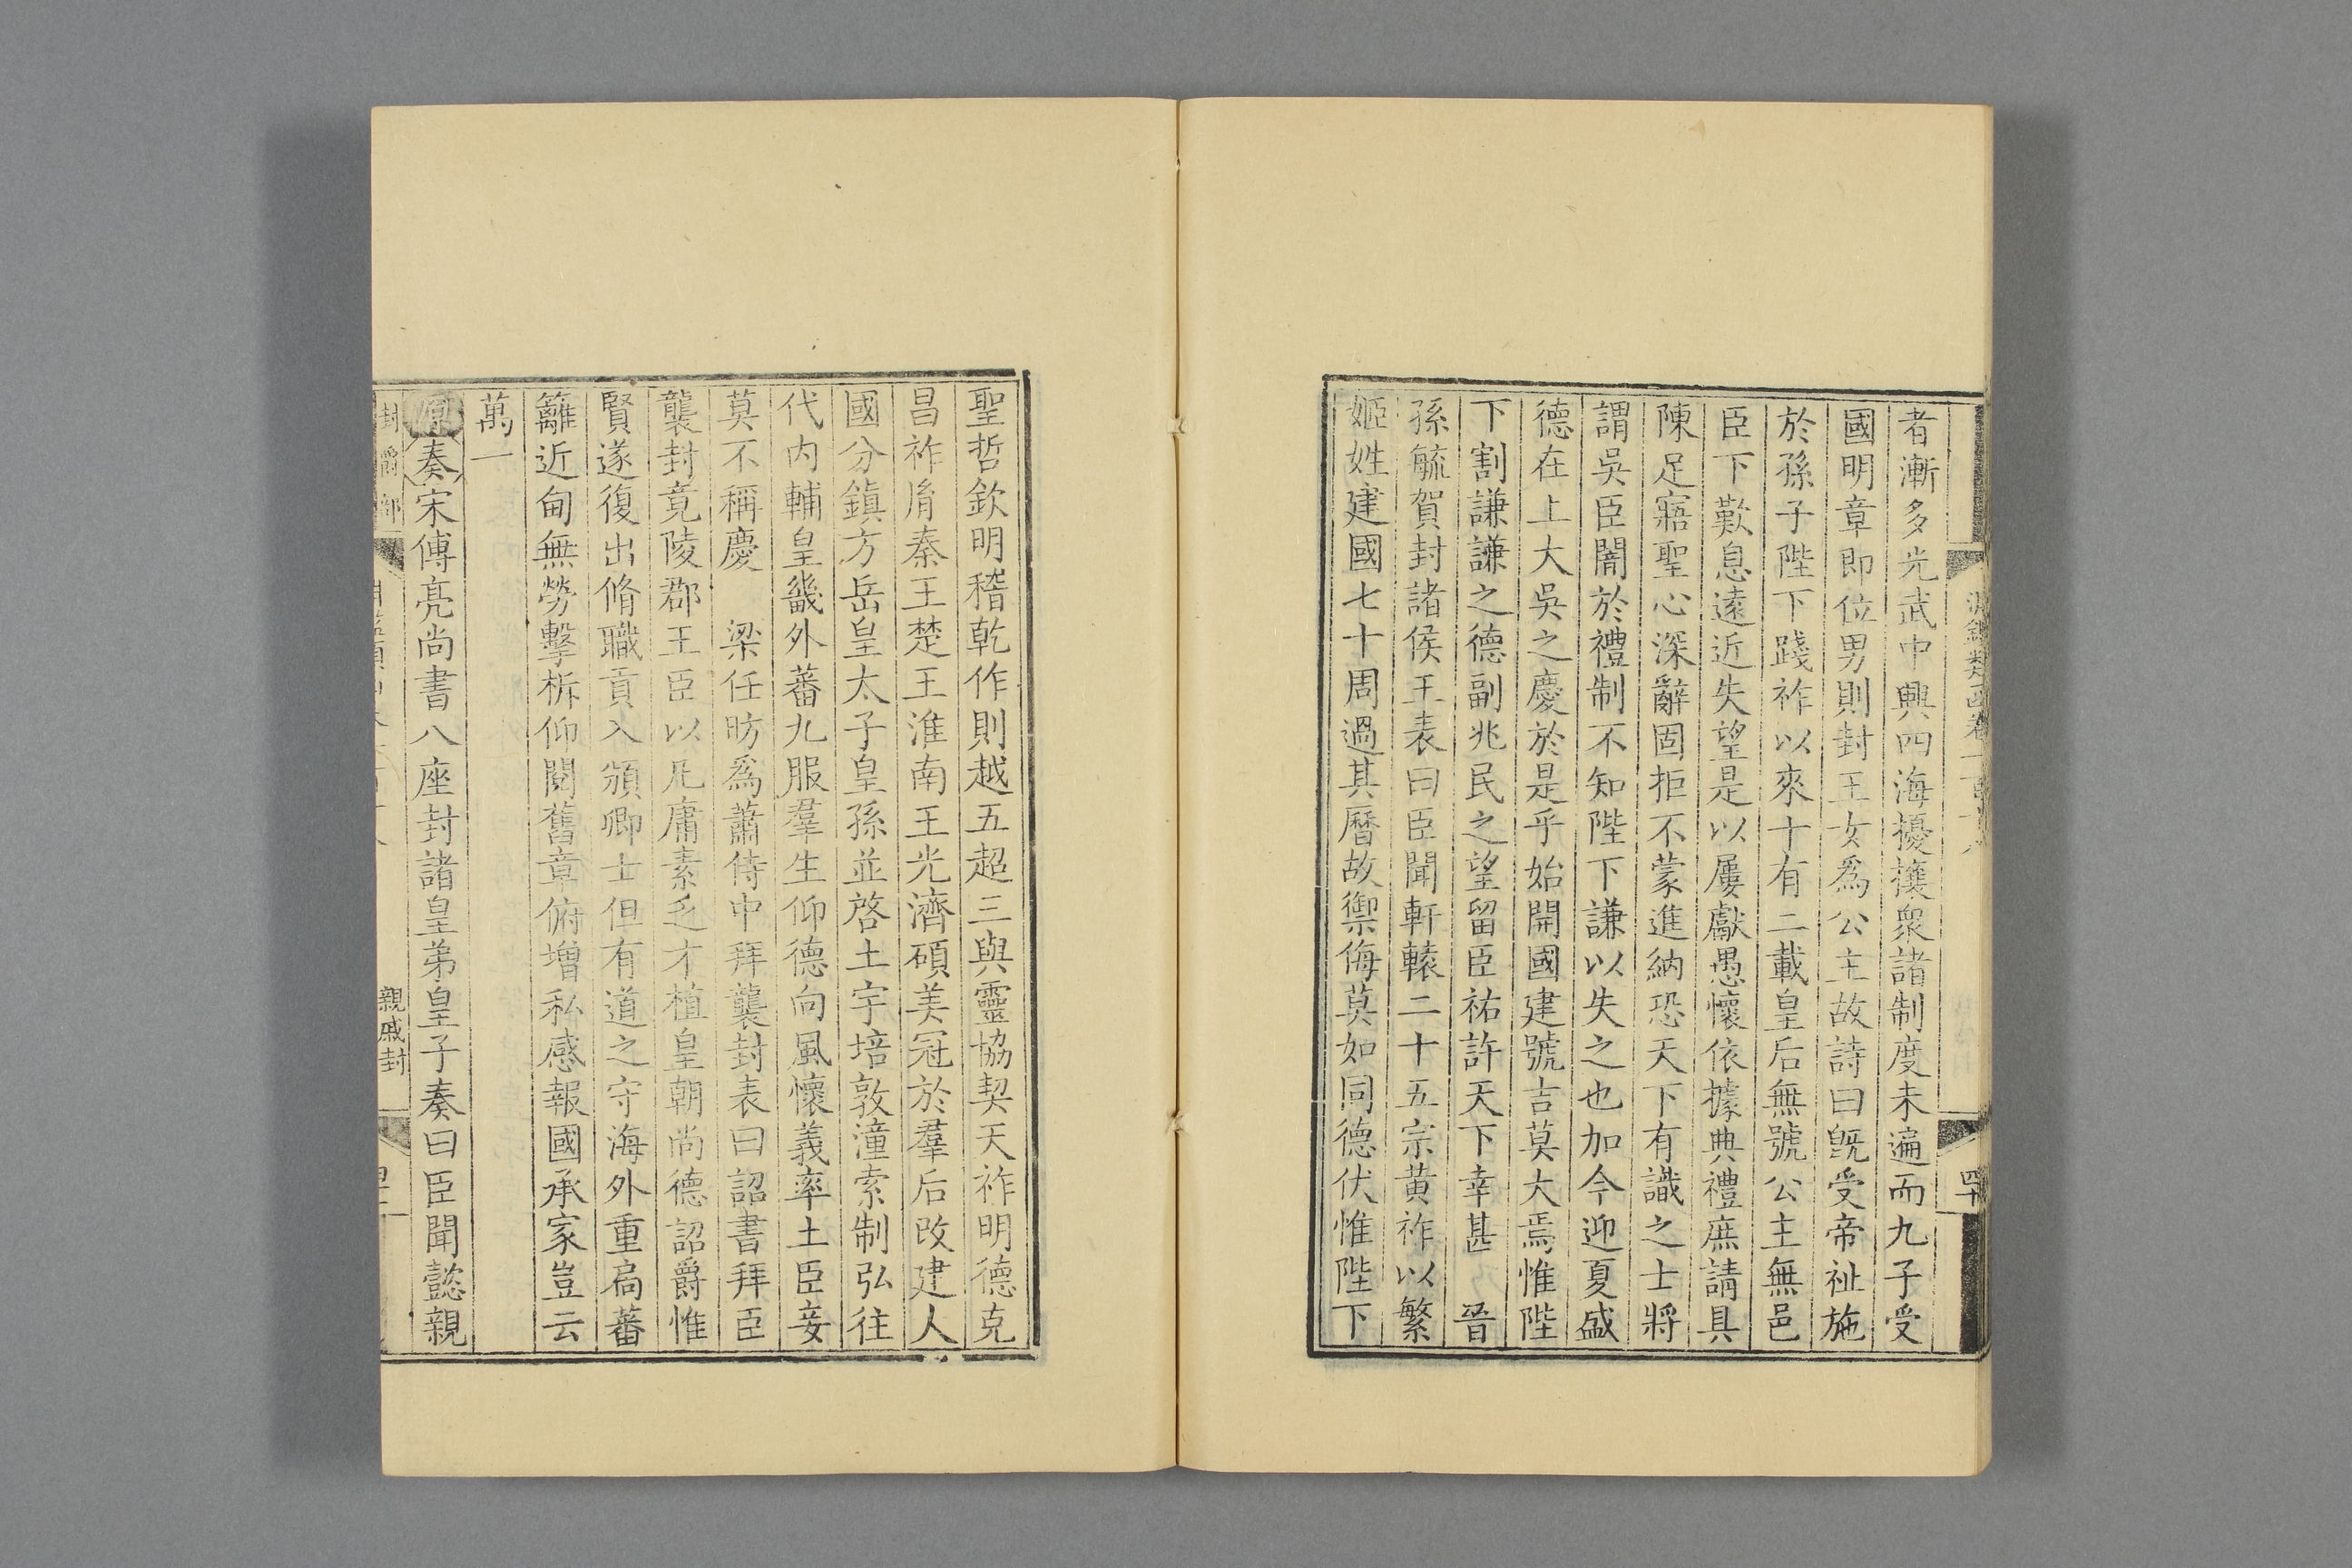 淵鑑類函卷一百十八
四十
者漸多光武中興四海擾攘衆諸制度未遍而九子受
國明章即位男則封王女爲公主故詩曰旣受帝祉施
於孫子陛下踐祚以來十有二載皇后無號公主無邑
臣下歎息遠近失望是以屢獻愚懷依據典禮庶請具
陳足寤聖心深辭固拒不蒙進納恐天下有識之士將
謂吳臣闇於禮制不知陛下謙以失之也加今迎夏盛
德在上大吳之慶於是乎始開國建號吉莫大焉惟陛
下割謙謙之德副兆民之望留臣祐許天下幸甚 晉
孫毓賀封諸侯王表曰臣聞軒轅二十五宗黃祚以繁
姬姓建國七十周過其曆故禦侮莫如同德伏惟陛下
聖哲欽明稽乾作則越五超三與靈協契天祚明德克
昌祚胤秦王楚王淮南王光濟碩美冠於羣后改建人
國分鎮方岳皇太子皇孫並啓土宇培敦潼索制弘往
代内輔皇畿外蕃九服羣生仰德向風懷義率土臣妾
莫不稱慶 梁任昉爲蕭侍中拜襲封表曰詔書拜臣
襲封竟陵郡王臣以凡庸素乏才植皇朝尚德詔爵惟
賢遂復出脩職貢入頒卿士但有道之守海外重扃蕃
籬近甸無勞擊柝仰閱舊章俯增私感報國承家豈云
萬一
原奏宋傅亮尚書八座封諸皇弟皇子奏曰臣聞懿親
封爵部
親戚封